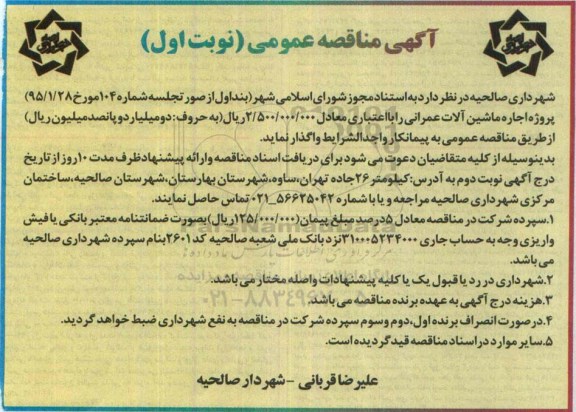 آگهی مناقصه عمومی (نوبت اول)
شهرداری صالحیه در نظر دارد به استناد مجوز شورای اسلامی شهر (بند اول از صورتجلسه شماره ۱۰۴ مورخ ۹۵/۱/۲۸)
پروژه اجاره ماشین آلات عمرانی را با اعتباری معادل ۲/۵۰۰/۰۰۰/۰۰۰ ریال (به حروف: دو میلیارد و پانصد میلیون ریال)
از طریق مناقصه عمومی به پیمانکار واجد الشرایط واگذار نماید.
بدینوسیله از کلیه متقاضیان دعوت می شود برای دریافت اسناد مناقصه و ارائه پیشنهاد ظرف مدت ۱۰ روز از تاریخ
درج آگهی نوبت دوم به آدرس: کیلومتر ۲۶ جاده تهران، ساوه، شهرستان بهارستان، شهرستان صالحیه، ساختمان
مرکزی شهرداری صالحیه مراجعه و یا با شماره ۵۶۶۲۵۰۴۲_۰۲۱ تماس حاصل نمایند.
۱. سپرده شرکت در مناقصه معادل ۵ درصد مبلغ پیمان (۱۲۵/۰۰۰/۰۰۰ ریال) بصورت ضمانتنامه معتبر بانکی یا فیش
واریزی وجه به حساب جاری ۳۱۰۰۰۵۲۳۴۰۰۰ نزد بانک ملی شعبه صالحیه کد ۲۶۰۱ بنام سپرده شهرداری صالحیه
می باشد.
۲. شهرداری در رد یا قبول یک یا کلیه پیشنهادات واصله مختار می باشد.
۳. هزینه درج آگهی به عهده برنده مناقصه می باشد.
۴. در صورت انصراف برنده اول، دوم و سوم سپرده شرکت در مناقصه به نفع شهرداری ضبط خواهد گردید.
۵. سایر موارد در اسناد مناقصه قید گردیده است.
علیرضا قربانی - شهردار صالحیه